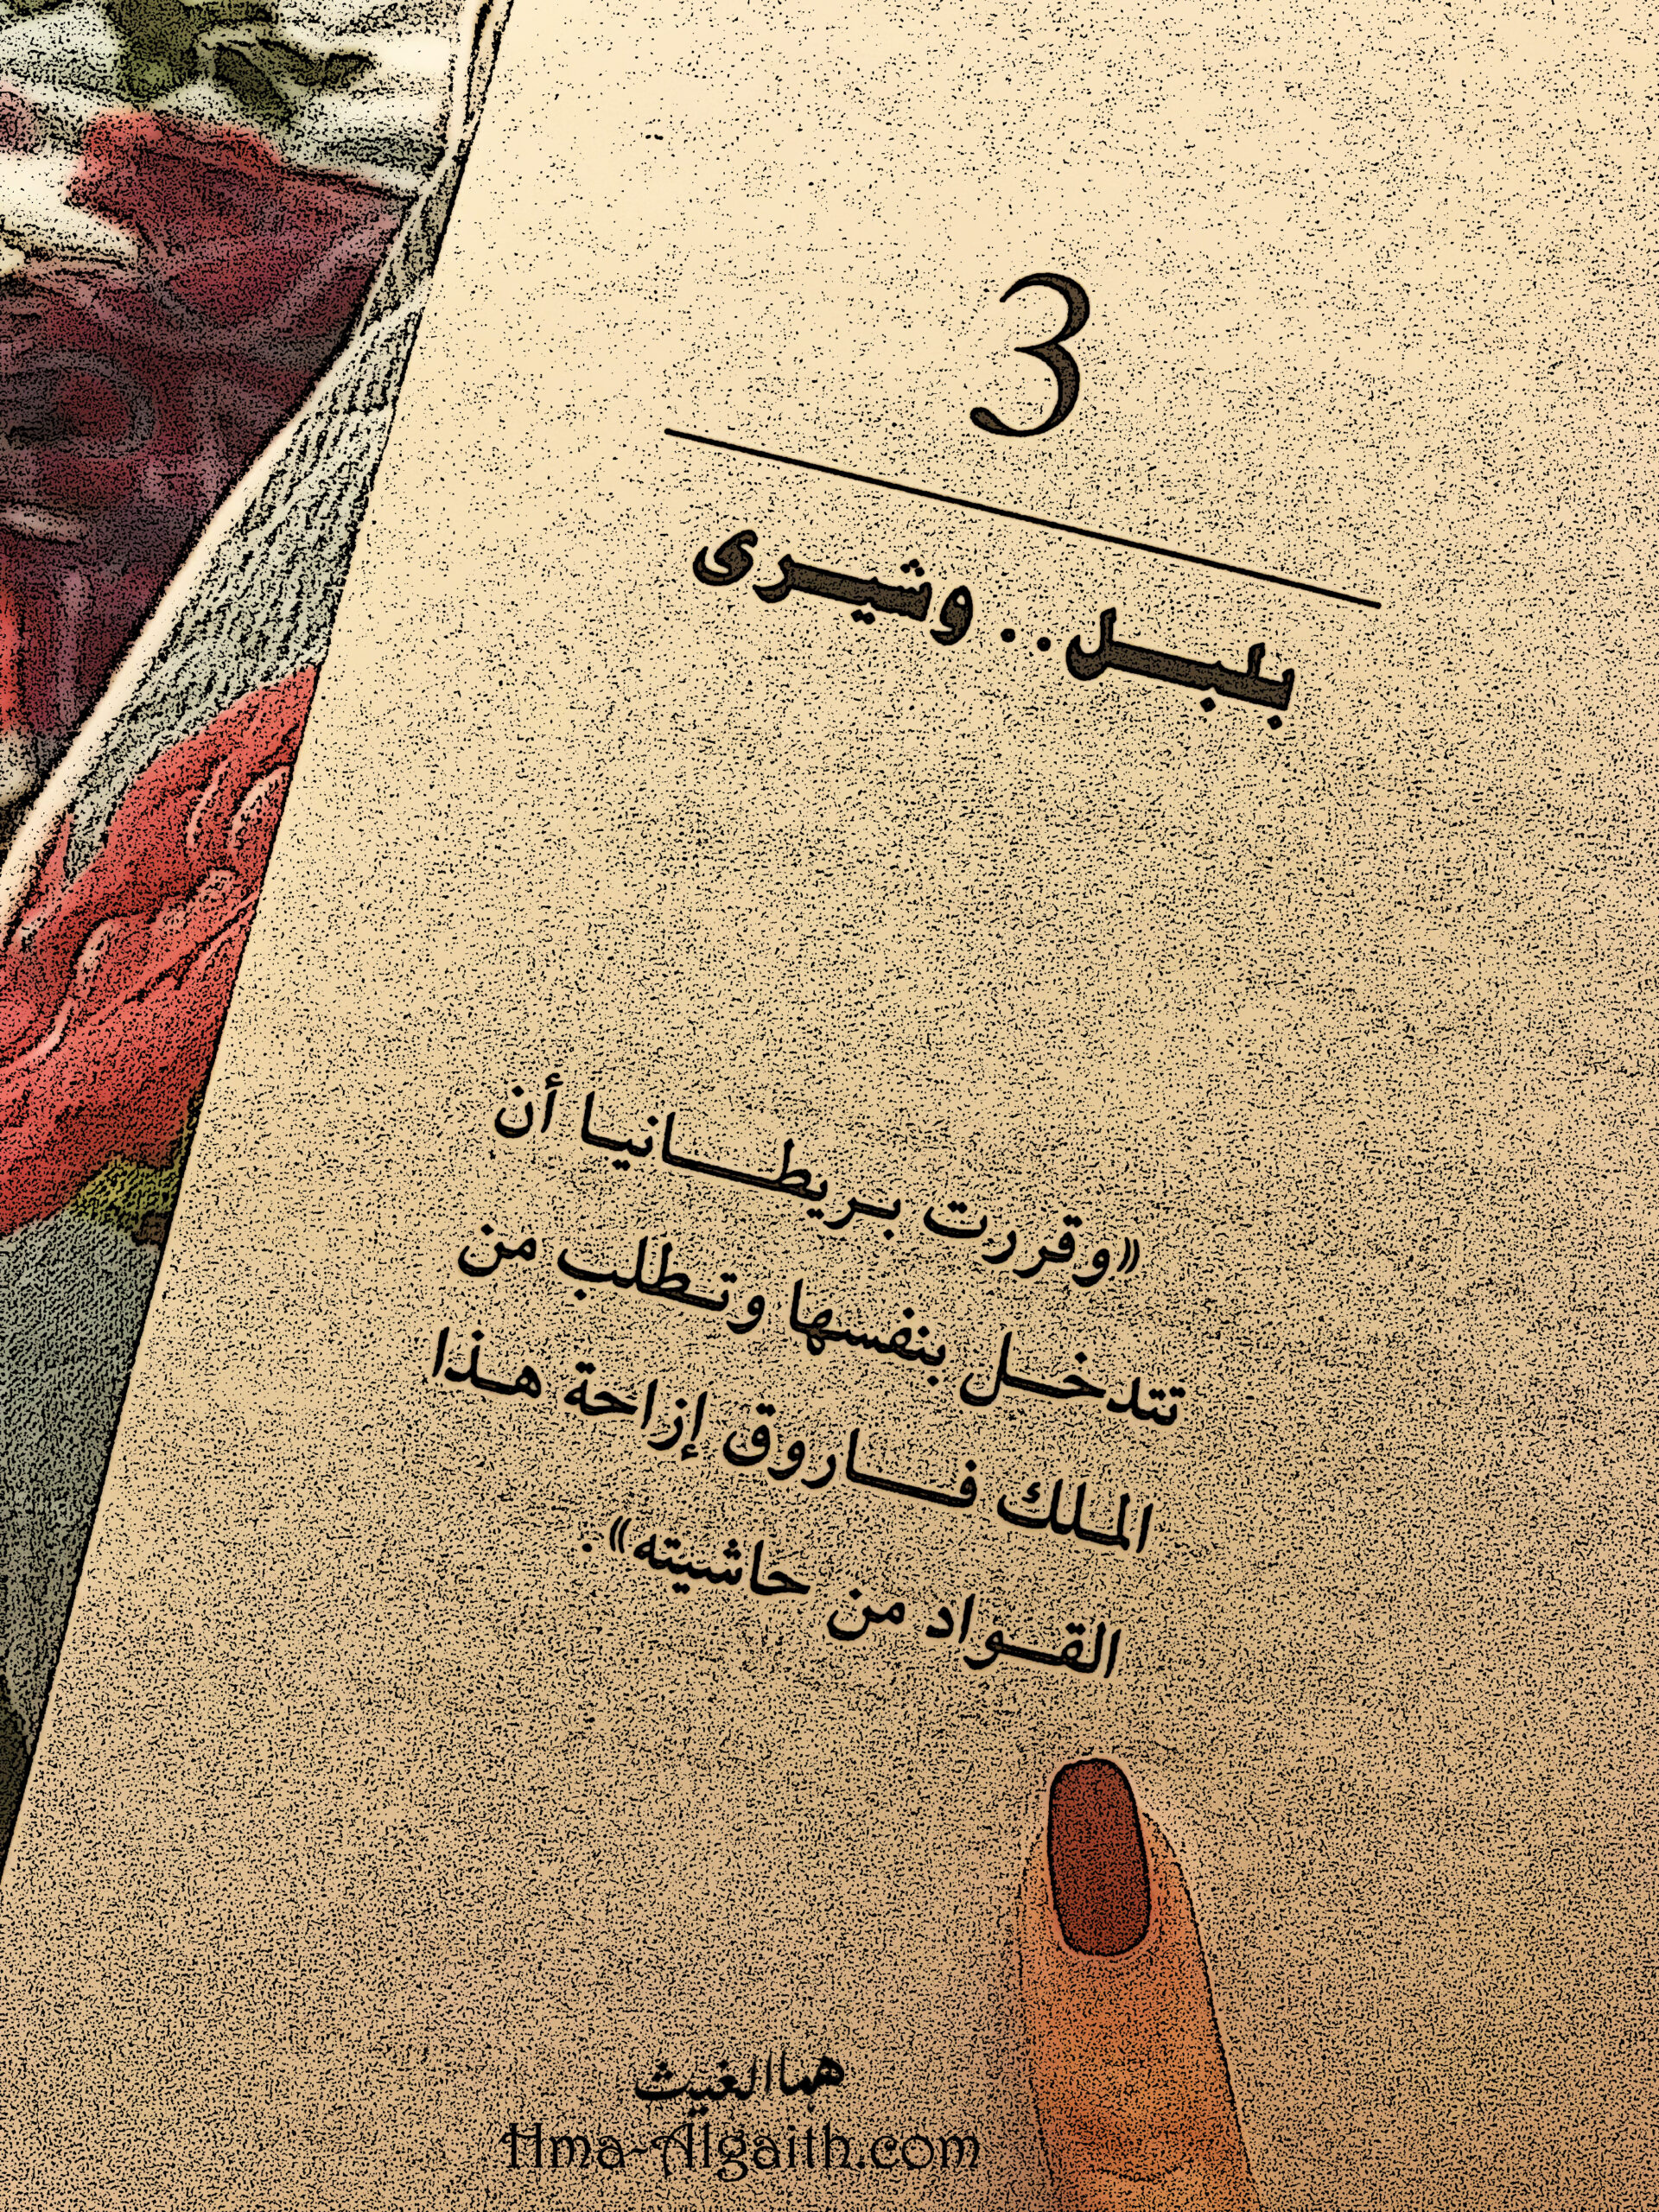 3
بلبل.. وشيرى
«وقررت بريطانيا أن
تتدخل بنفسها وتطلب من
الملك فاروق إزاحة هذا
القواد من حاشيته».
هما الغيث
Hma-Algaith.com